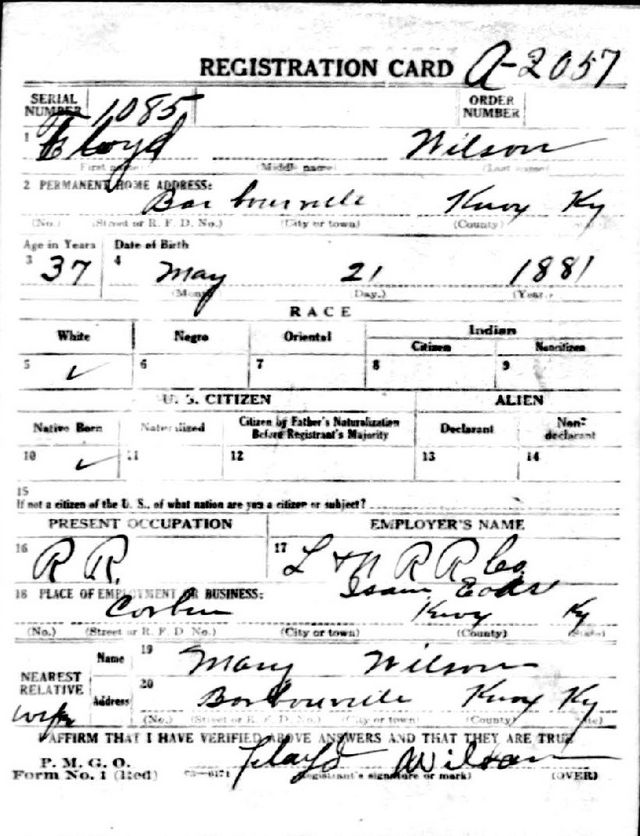 REGISTRATION CARD A-2057
SERIAL NUMBER 1085 ORDER NUMBER
1 Floyd Wilson
First name) (Middle name) (Last name)
2 PERMANENT HOME ADDRESS:
Barbourville Knox Ky
(No.) (Street or R. F. D. No.) (City or town) (County)
Age in Years Date of Birth
3 37 4 May 21 1881
(Month) Day.) (Year.)
RACE
White Negro Oriental Indian
Citizen Noncitizen
5 ✓ 6 7 8 9
U. S. CITIZEN ALIEN
Native Born Naturalized Citizen by Father's Naturalization Before Registrant's Majority Declarant Non-declarant
10 ✓ 11 12 13 14
15
If not a citizen of the U. S., of what nation are you a citizen or subject?
PRESENT OCCUPATION EMPLOYER'S NAME
16 R R. 17 L & N R R Co
18 PLACE OF EMPLOYMENT OR BUSINESS:
Corbin Knox Ky
(No.) (Street or R. F. D. No.) (City or town) (County) (State)
NEAREST RELATIVE Name 19 Mary Wilson
Address 20 Barbourville Knox Ky
wife (No.) (Street or R. F. D. No.) (City or town) (County) (State)
I AFFIRM THAT I HAVE VERIFIED ABOVE ANSWERS AND THAT THEY ARE TRUE
P. M. G. O.
Form No. 1 (Red) 03-6171 Floyd Wilson
(Registrant's signature or mark) (OVER)